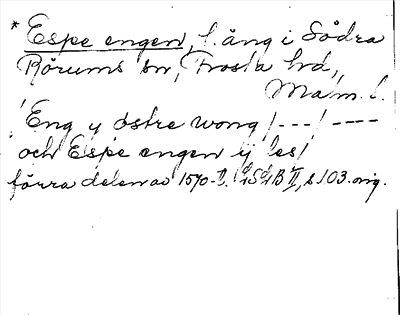 * Espe engen, f. äng i Södra
Rörums sn, Frosta hd,
Malm. l.
! Eng y östre wong /---/ ----
och Espe engen ij les/
förra delen av 1570-t. LSLB II, s 103. orig.